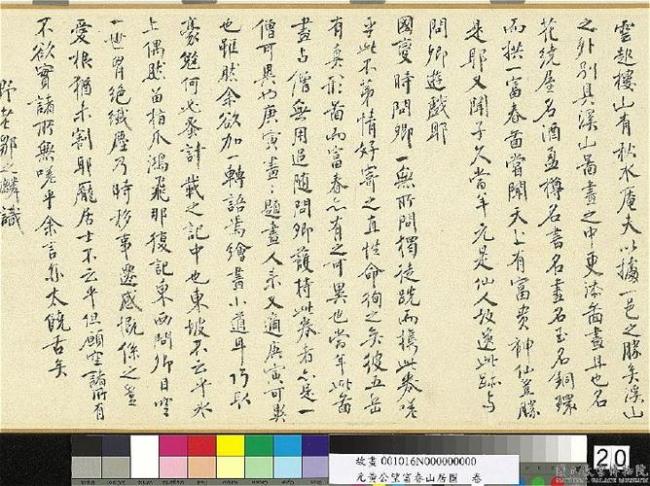 雲起樓山有秋水菴夫以據一邑之勝矣溪山
之外別具溪山圖畫之中更添圖畫且也名
花繞屋名酒盈樽名書名畫名玉名銅環
而拱一富春圖嘗聞天上有富貴神仙豈勝
是耶又聞子久當年元是仙人故遺此跡与
問卿遊戲耶
國變時問卿一無所問獨徒跣而攜此卷嗟
乎此不第情好寄之直性命徇之矣彼五岳
有真形圖而富春亦有之可異也當年此圖
畫與僧無用追隨問卿護持此卷者亦是一
僧可異也庚寅畫畫題畫人來又適庚寅可異
也雖然余欲加一轉語焉繪畫小道耳巧取
豪奪何必蚤計載之記中也東坡不云乎冰
上偶然留指爪鴻飛那復記東西問卿目空
一世胸絕纖塵乃時移事遷感慨係之豈
愛根猶未割耶龐居士不云乎但願空諸所有
不欲實諸所無嗟乎余言亦太饒舌矣
野老鄒之麟識
故畫 001016N000000000
元黃公望富春山居圖 卷
20
國立故宮博物院